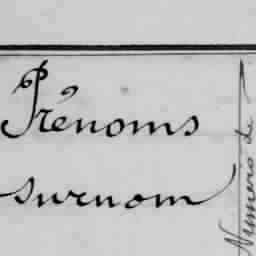 Prénoms
surnom
Numéro de